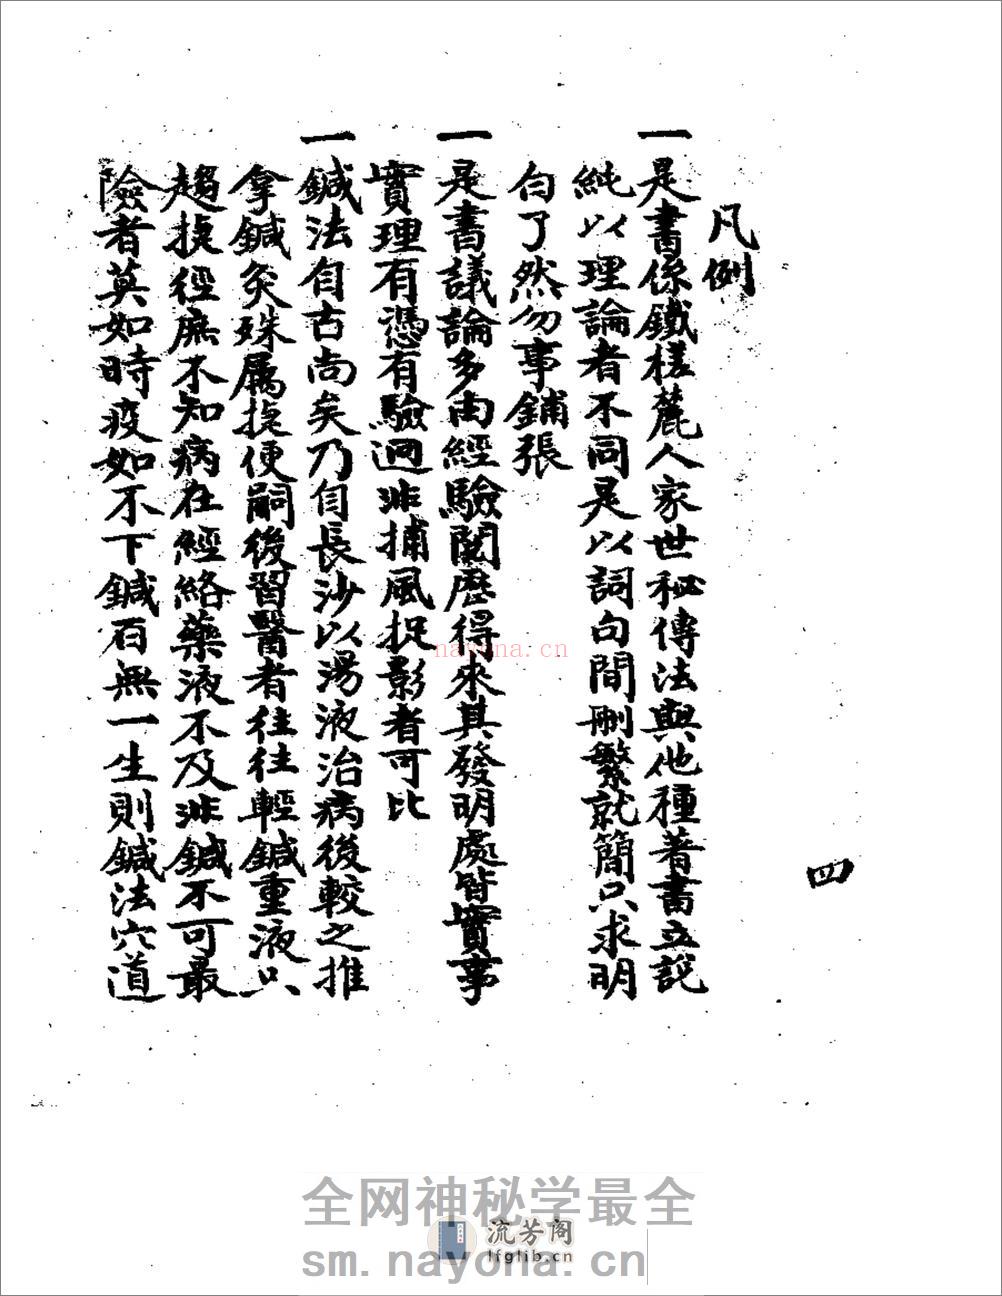 凡例
一是書係鐵槎麓人家世秘傳法與他種著書立說
純以理論者不同是以詞句間刪繁就簡只求明
白了然勿事鋪張
一是書議論多由經驗閱歷得來其發明處皆實事
實理有憑有驗迥非捕風捉影者可比
一鍼法自古尚矣乃自長沙以湯液治病後較之推
拿鍼灸殊屬捷便嗣後習醫者往往輕鍼重液只
趨捷徑庶不知病在經絡藥液不及非鍼不可最
險者莫如時疫如不下鍼石無一生則鍼法穴道
四
nayona.cn
全网神秘学最全
流芳阁
lfglib.cn
sm.nayona.cn